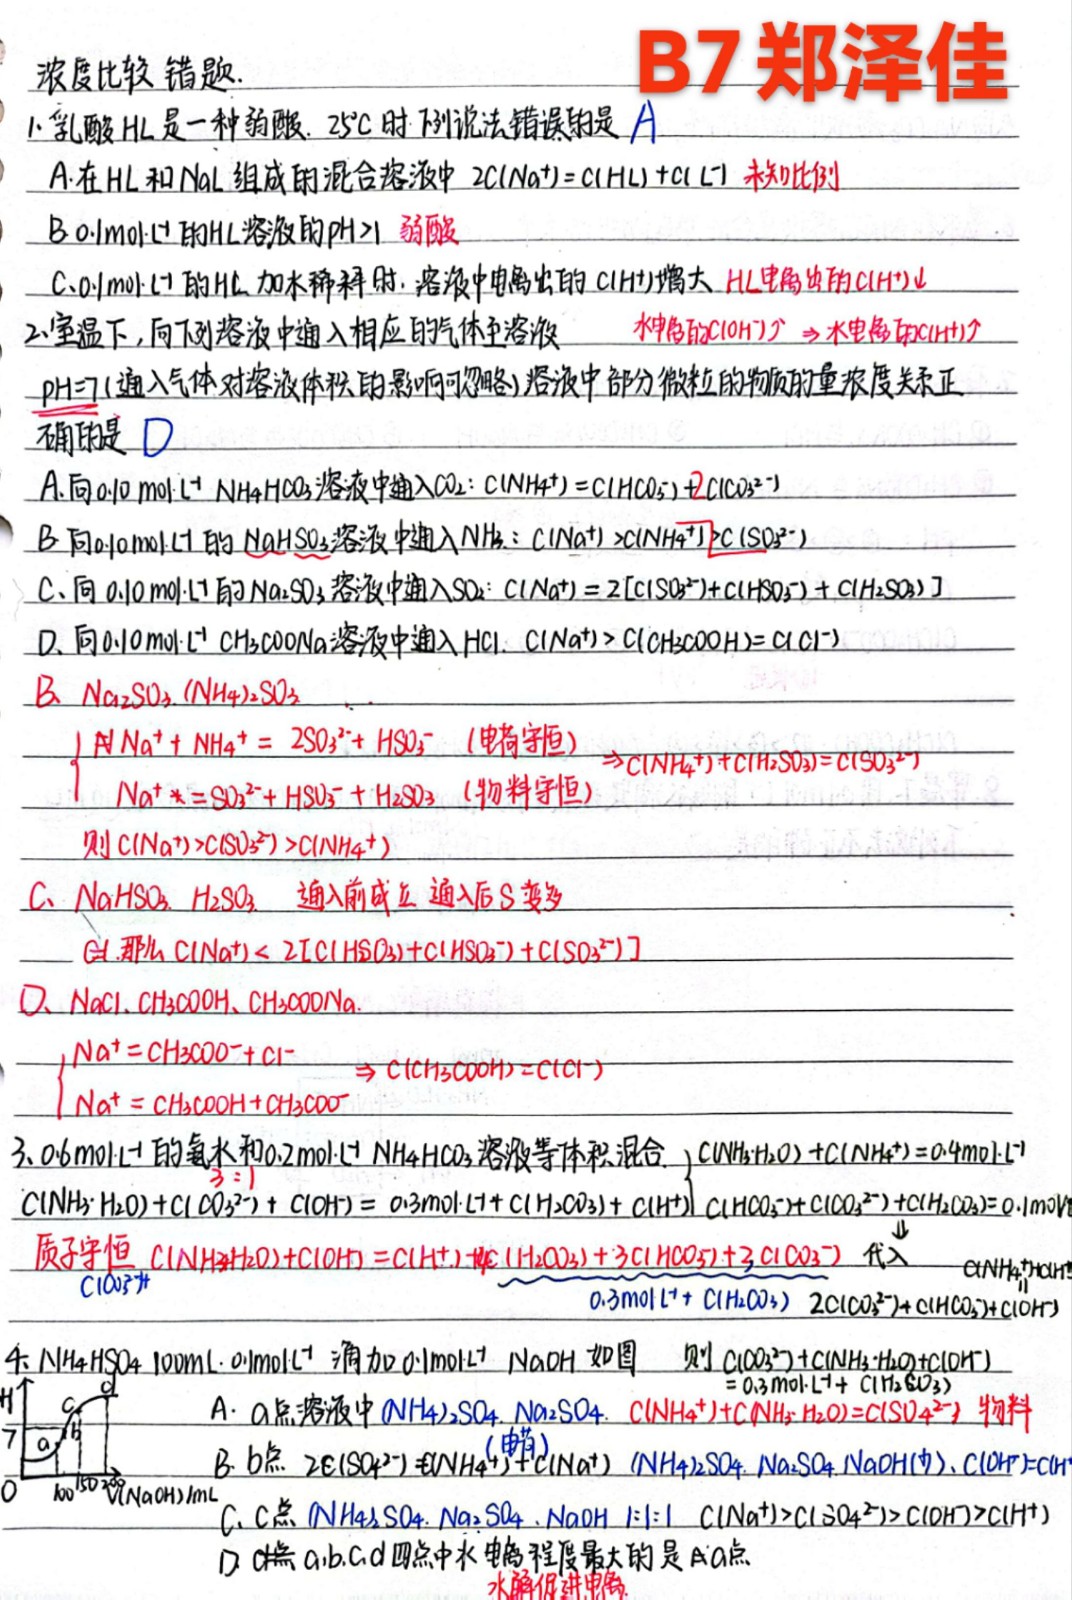 B7郑泽佳
浓度比较 错题.
1.乳酸HL是一种弱酸. 25℃时下列说法错误的是 A
A.在HL和NaL组成的混合溶液中 2C(Na⁺)=C(HL)+C(L⁻) 未知比例
B.0.1mol·L⁻¹的HL溶液的pH>1 弱酸
C.0.1mol·L⁻¹的HL加水稀释时.溶液中电离出的C(H⁺)增大 HL电离出的C(H⁺)↓
2.室温下,向下列溶液中通入相应的气体至溶液 水中的C(OH⁻)↑ ⇒水电离的C(H⁺)↑
pH=7(通入气体对溶液体积的影响可忽略)溶液中部分微粒的物质的量浓度关系正
确的是 D
A.向0.10mol·L⁻¹ NH4HCO3溶液中通入CO2: C(NH4⁺)=C(HCO3⁻)+2C(CO3²⁻)
B.向0.10mol·L⁻¹的NaHSO3溶液中通入NH3: C(Na⁺)>C(NH4⁺)>C(SO3²⁻)
C、向0.10mol·L⁻¹的Na2SO3溶液中通入SO2: C(Na⁺)=2[C(SO3²⁻)+C(HSO3⁻)+C(H2SO3)]
D、向0.10mol·L⁻¹ CH3COONa溶液中通入HCl. C(Na⁺)>C(CH3COOH)=C(Cl⁻)
B. Na2SO3.(NH4)2SO3
Na⁺+NH4⁺= 2SO3²⁻+HSO3⁻ (电荷守恒) ⇒C(NH4⁺)+C(H2SO3)=C(SO3²⁻)
Na⁺=SO3²⁻+HSO3⁻+H2SO3 (物料守恒)
则C(Na⁺)>C(SO3²⁻)>C(NH4⁺)
C、NaHSO3. H2SO3. 通入前成立 通入后S变多
那么C(Na⁺)<2[C(H2SO3)+C(HSO3⁻)+C(SO3²⁻)]
D、NaCl、CH3COOH、CH3COONa.
Na⁺=CH3COO⁻+Cl⁻ ⇒C(CH3COOH)=C(Cl⁻)
Na⁺=CH3COOH+CH3COO⁻
3、0.6mol·L⁻¹的氨水和0.2mol·L⁻¹ NH4HCO3溶液等体积混合. C(NH3·H2O)+C(NH4⁺)=0.4mol·L⁻¹
3:1
C(NH3·H2O)+C(CO3²⁻)+C(OH⁻)=0.3mol·L⁻¹+C(H2CO3)+C(H⁺) C(HCO3⁻)+C(CO3²⁻)+C(H2CO3)=0.1mol
质子守恒 C(NH3·H2O)+C(OH⁻)=C(H⁺)+4C(H2CO3)+3C(HCO3⁻)+2C(CO3²⁻) 代入 C(NH4⁺)+C(H⁺
C(CO3²⁻)+ 0.3mol·L⁻¹+C(H2CO3) 2C(CO3²⁻)+C(HCO3⁻)+C(OH⁻)
4.NH4HSO4 100mL.0.1mol·L⁻¹ 滴加0.1mol·L⁻¹ NaOH 如图 则C(CO3²⁻)+C(NH3·H2O)+C(OH⁻)
=0.3mol·L⁻¹+C(H2CO3)
H 7 0 a b c d 100 150 200 V(NaOH)/mL
A. a点溶液中(NH4)2SO4. Na2SO4. C(NH4⁺)+C(NH3·H2O)=C(SO4²⁻) 物料
(电荷)
B. b点 2C(SO4²⁻)=C(NH4⁺)+C(Na⁺) (NH4)2SO4. Na2SO4. NaOH(少)、C(OH⁻)=C(H⁺
C、c点(NH4)2SO4. Na2SO4. NaOH 1:1:1 C(Na⁺)>C(SO4²⁻)>C(OH⁻)>C(H⁺)
D. d点 a.b.c.d四点中水电离程度最大的是A:a点
水解促进电离.